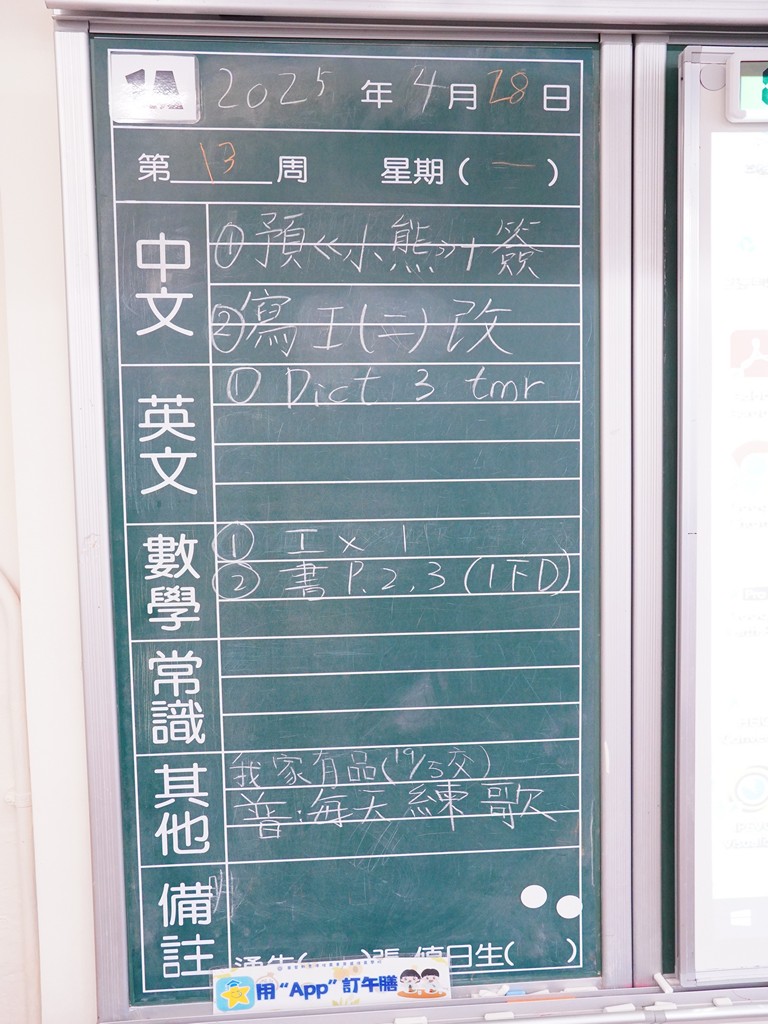 1A 2025 年 4 月 28 日
第 13 周 星期 ( 一 )
中文
① 預《小熊》+ 簽
② 寫工(二)改
英文
① Dict 3 tmr
數學
① 工 x 1
② 書 P. 2, 3 (1下D)
常識
其他
我家有品(19/5交)
普:每天練歌
備註
通告( )張 值日生( )
用 “App” 訂午膳